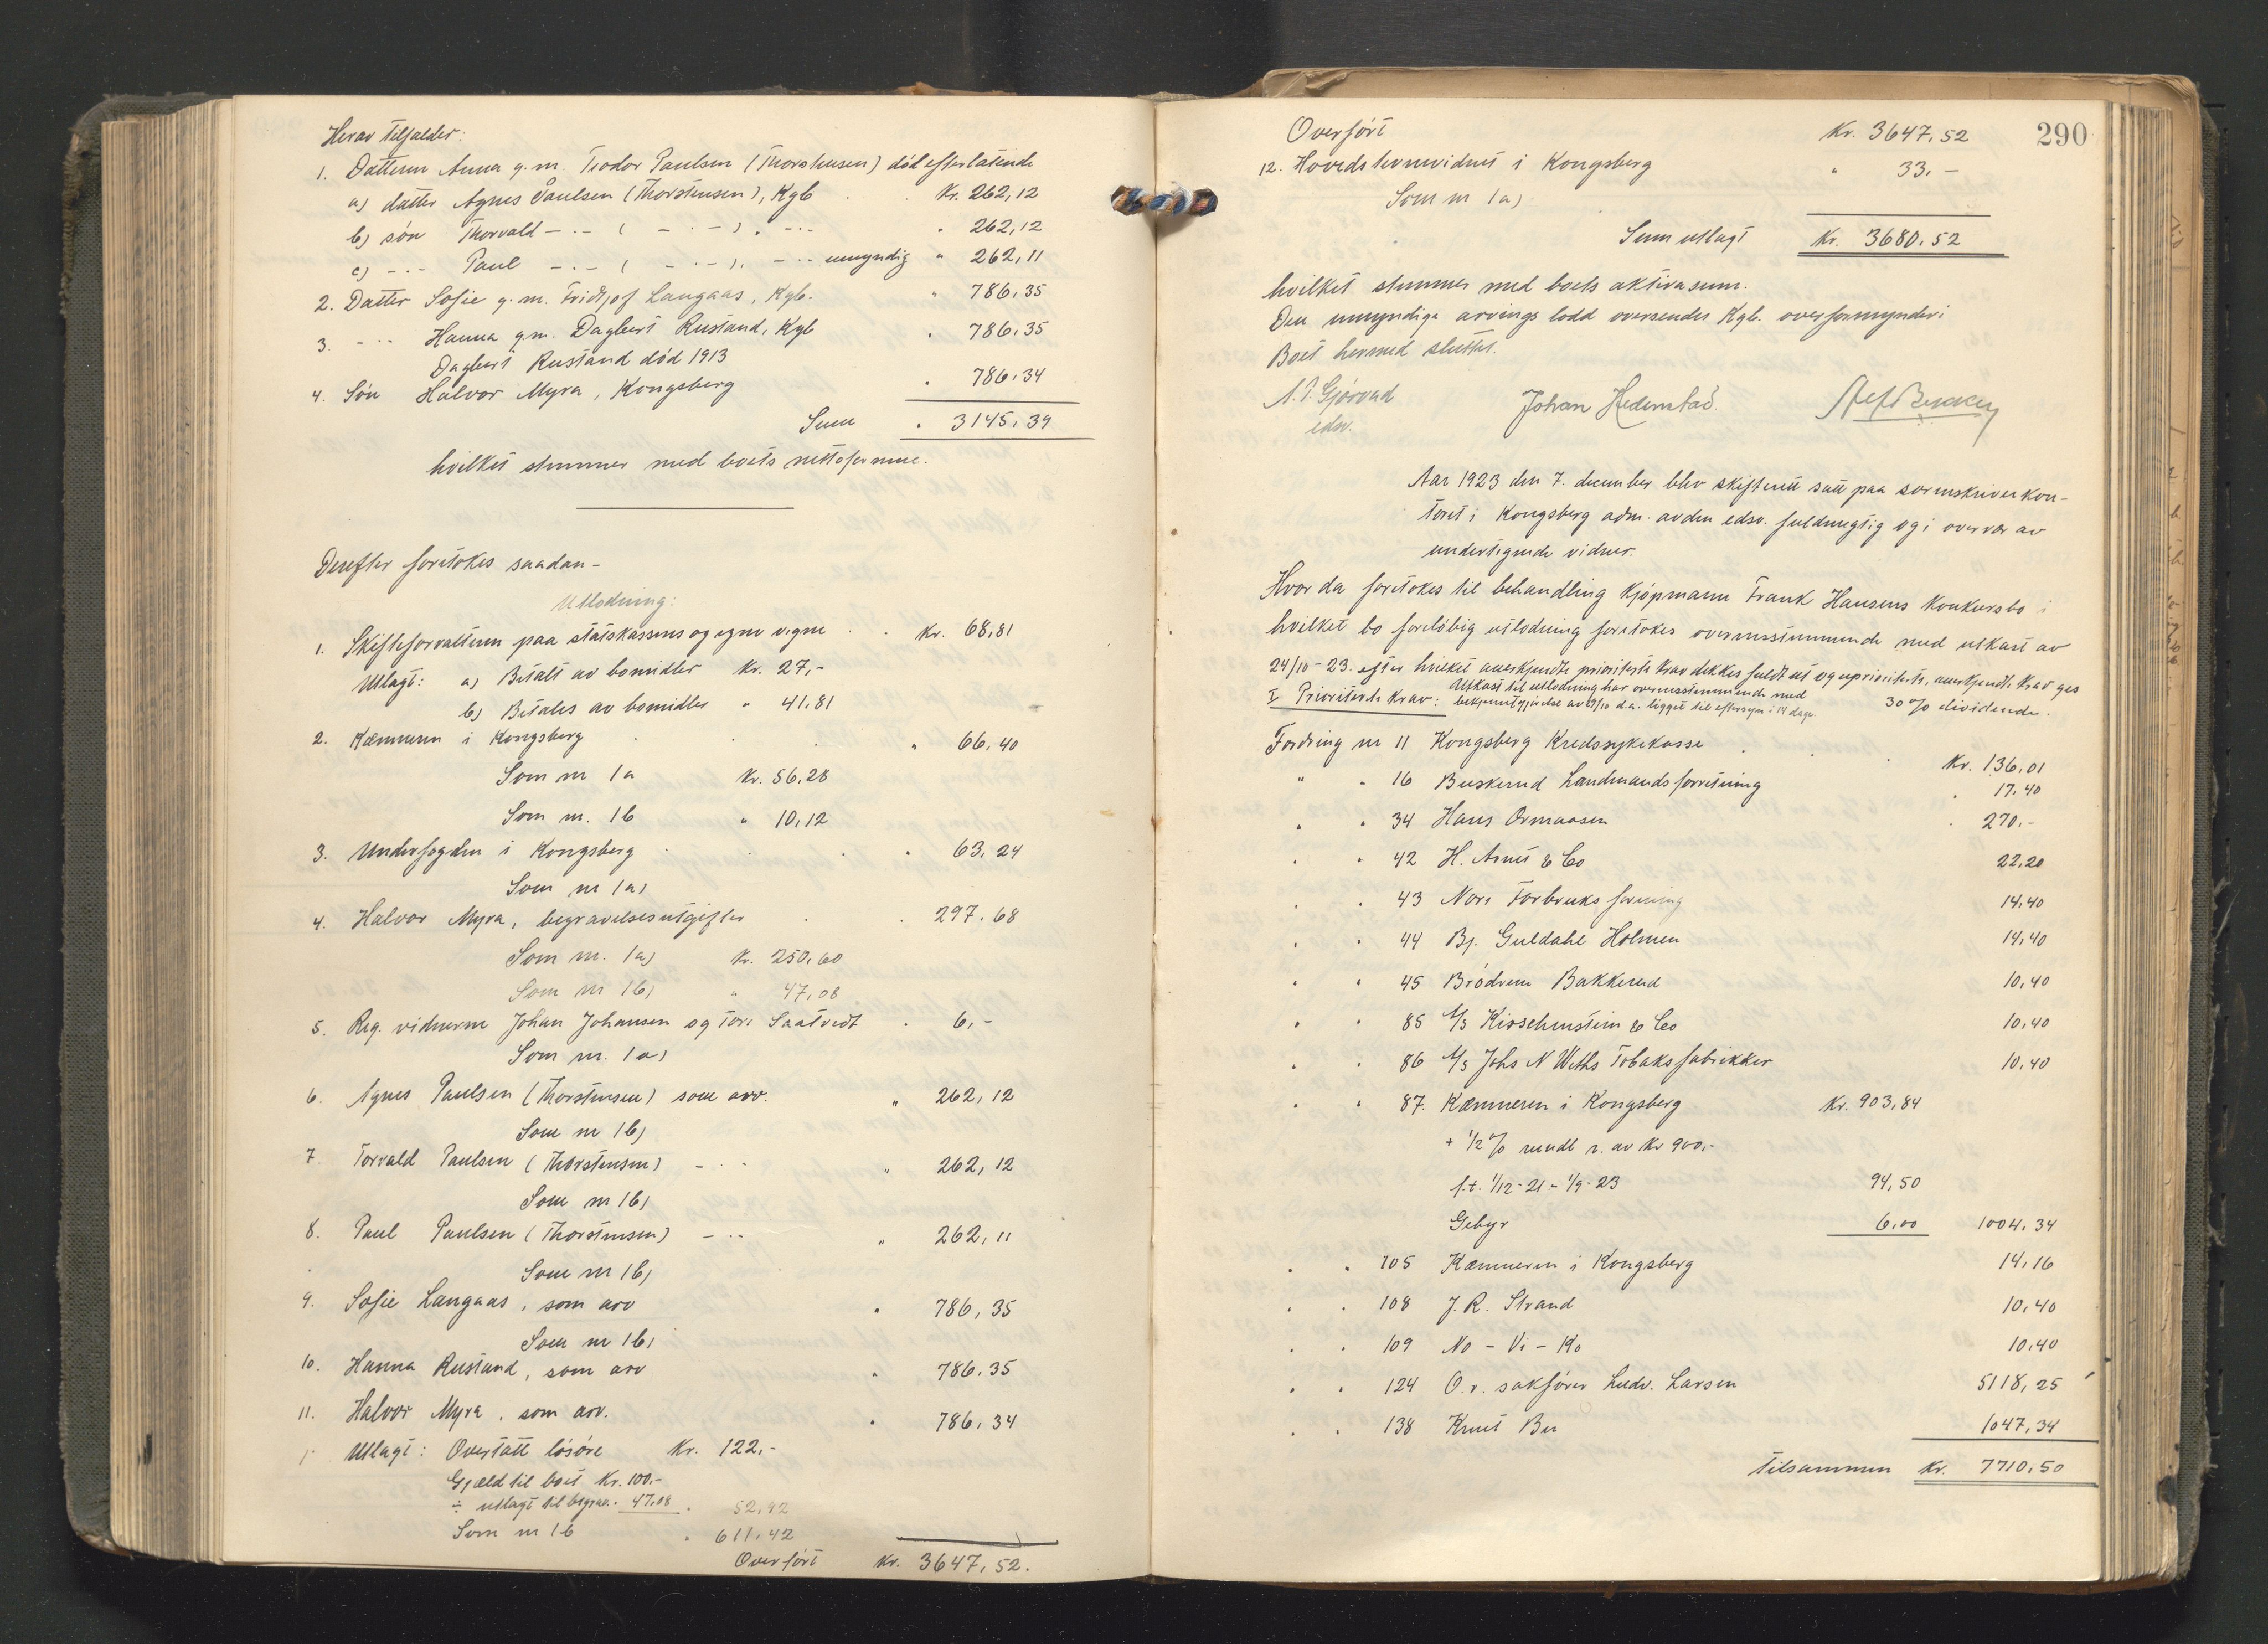 Herav tilfalder:
1. Datteren Anna g.m. Teodor Paulsen (Thorstensen) död efterlatende
a) datter Agnes Paulsen (Thorstensen), Kgb. Kr. 262,12
b) sön Thorvald -..- ( -..- ), -..- " 262,12
c) -..- Paul -..- ( -..- ), -..- umyndig " 262,11
2. Datter Sofie g.m. Fridtjof Langaas, Kgb. " 786,35
3. -..- Hanna g.m. Dagbert Rustand, Kgb " 786,35
Dagbert Rustand död 1913
4. Sön Halvor Myra, Kongsberg " 786,34
Sum " 3145,39
hvilket stemmer med boets nettoformue.
Derefter foretokes saadan-
Utlodning:
1. Skifteforvalteren paa statskassens og egne vegne Kr. 68,81
Utlagt: a) Betalt av bomidler Kr. 27,-
b) Betales av bomidler " 41,81
2. Kæmneren i Kongsberg " 66,40
Som nr 1a Kr. 56,28
Som nr. 1b " 10,12
3. Underfogden i Kongsberg " 63,24
Som nr 1a)
4. Halvor Myra, begravelsesutgifter " 297,68
Som nr. 1a) Kr. 250,60
Som nr 1b) " 47,08
5. Reg. vidnerne Johan Johansen og Tore Saatvedt " 6,-
Som nr. 1a)
6. Agnes Paulsen (Thorstensen) som arv. " 262,12
Som nr 1b)
7. Torvald Paulsen (Thorstensen) -..- " 262,12
Som nr 1b)
8. Paul Paulsen (Thorstensen) -..- " 262,11
Som nr 1b)
9. Sofie Langaas, som arv " 786,35
Som nr 1b)
10. Hanna Rustand, som arv " 786,35
11. Halvor Myra, som arv. " 786,34
Utlagt: Overtatt lösöre Kr. 122,-
Gjæld til boet Kr. 100.-
÷ utlagt til begrav. 47,08 " 52,92
Som nr 1b " 611,42
Overført Kr. 3647,52.
290
Overfört Kr. 3647,52
12. Hovedstevnevidnet i Kongsberg " 33.-
Som nr 1a)
Sum utlagt Kr. 3680,52
hvilket stemmer med boets aktivasum.
Den umyndige arvings lodd oversendes Kgb. overformynderi
Boet hermed sluttet.
A.T. Gjörvad Johan Hedenstad
edsv.
Aar 1923 den 7. december blev skifterett satt paa sorenskriverkon-
toret i Kongsberg adm. av den edsv. fuldmegtig og i overvær av
undertegnede vidner.
Hvor da foretokes til behandling Kjøpmann Frank Hansens Konkursbo i
hvilket bo foreløbig utlodning foretokes overensstemmende med utkast av
24/10-23. efter hvilket anerkjendte prioriterte krav dekkes fuldt ut og uprioriterte, anerkjendte krav ges
30% dividende.
I Prioriterte Krav: Utkast til utlodning har overensstemmende med
bekjentgjørelse av 29/10 d.a. ligget til eftersyn i 14 dage.
Fordring nr 11 Kongsberg Kredssykekasse Kr. 136,01
" " 16 Buskerud Landmandsforretning " 17,40
" " 34 Hans Ormaasen " 270.-
" " 42 H. Arnet & Co 22,20
" " 43 Nore Forbruksforening 14,40
" " 44 Bj. Guldahl Holmen 14,40
" " 45 Brödrene Bakkerud 10,40
" " 85 A/S Kirschenstein & Co 10,40
" " 86 A/S Johs N Weths Tobaksfabrikker 10,40
" " 87. Kæmneren i Kongsberg Kr. 903,84
+ 1/2% mndl r. av Kr 900,-
f.t. 1/12-21 - 1/9-23 94,50
Gebyr 6,00 1004,34
" " 105 Kæmneren i Kongsberg 14,16
" " 108 J.R. Strand 10,40
" " 109 No-Vi-Ko 10,40
" " 124 O.r. sakfører Ludv. Larsen 5118,25
" " 138 Knut Bu 1047,34
Tilsammen Kr. 7710,50